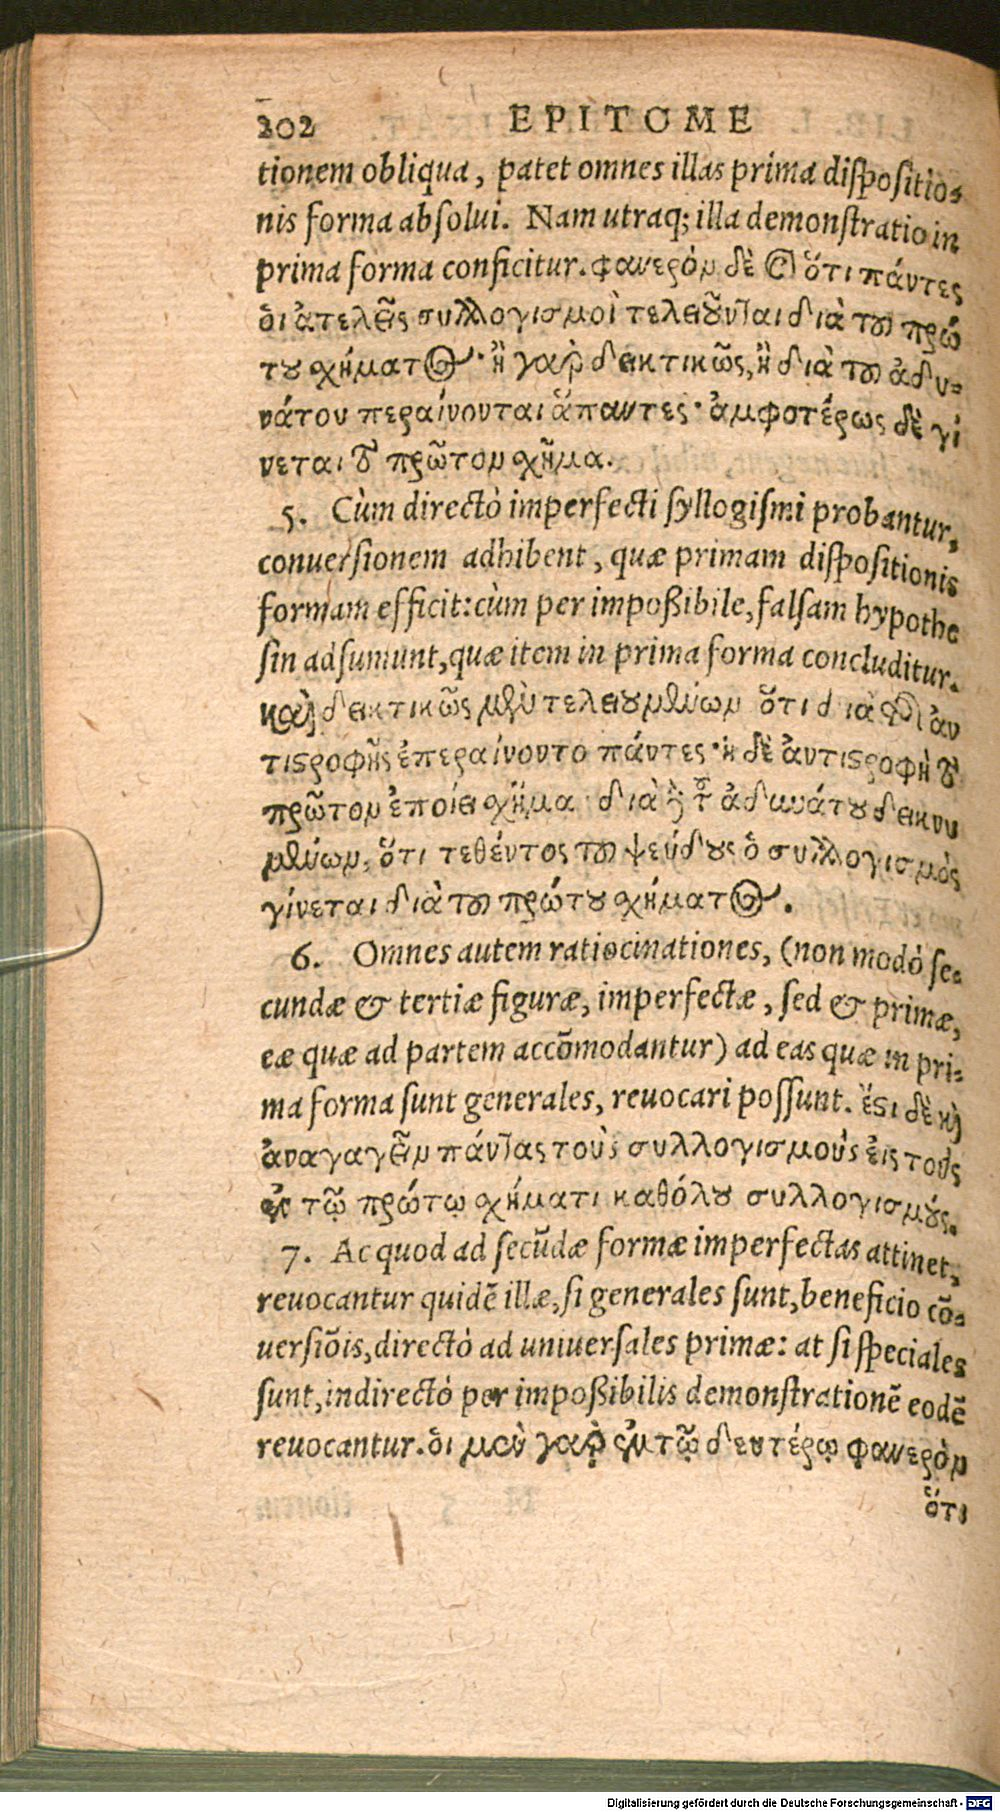 202 EPITOME
tionem obliqua, patet omnes illas prima dispositio-
nis forma absolui. Nam utraq; illa demonstratio in
prima forma conficitur. φανερὸν δὲ καὶ ὅτι πάντες
ὁι ἀτελεῖς συλλογισμοὶ τελειοῦνται διὰ τοῦ πρώ
του χήματος· ἢ γαρ̀ δεικτικῶς, ἢ διὰ τοῦ ἀδυ-
νάτου περαίνονται ἅπαντες· ἀμφοτέρως δὲ γί
νεται τὸ πρῶτον χῆμα.
5. Cùm directò imperfecti syllogismi probantur,
conuersionem adhibent, quæ primam dispositionis
formam efficit: cùm per impoßibile, falsam hypothe
sin adsumunt, quæ item in prima forma concluditur.
καὶ δεικτικῶς μὲν τελειουμένων ὅτι διὰ τῆς ἀν
τιςροφῆς ἐπεραίνοντο πάντες· ἡ δὲ ἀντιςροφὴ τὸ
πρῶτον ἐποίει χῆμα· διὰ δὲ τοῦ ἀδυνάτου δεικνυ
μένων, ὅτι τεθέντος τοῦ ψεύδους ὁ συλλογισμὸς
γίνεται διὰ τοῦ πρώτου χήματος.
6. Omnes autem ratiocinationes, (non modò se-
cundæ & tertiæ figuræ, imperfectæ, sed & primæ,
eæ quæ ad partem accōmodantur) ad eas quæ in pri-
ma forma sunt generales, reuocari possunt. ἔςι δὲ καὶ
ἀναγαγεῖν πάντας τοὺς συλλογισμοὺς ἐις τοὺς
ἐν τῷ πρώτῳ χήματι καθόλου συλλογισμούς.
7. Ac quod ad secūdæ formæ imperfectas attinet,
reuocantur quidē illæ, si generales sunt, beneficio cō-
uersiōis, directò ad uniuersales primæ: at si speciales
sunt, indirectò per impoßibilis demonstrationē eodē
reuocantur. ὁι μὲν γαρ̀ ἐν τῷ δευτέρῳ φανερὸν
ὅτι
Digitalisierung gefördert durch die Deutsche Forschungsgemeinschaft - DFG